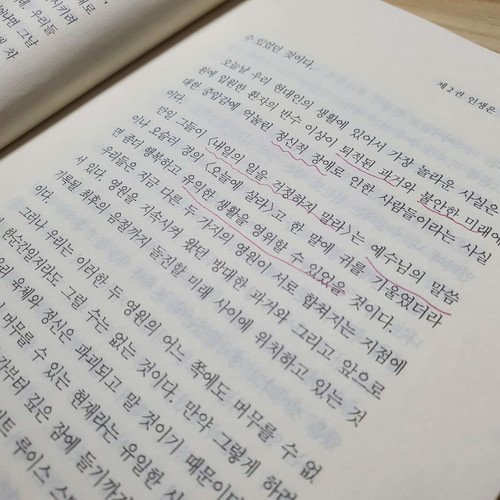 수 있었던 것이다.
제 2 권 인생은
오늘날 우리 현대인의 생활에 있어서 가장 놀라운 사실은
원에 입원한 환자의 반수 이상이 퇴적된 과거와 불안한 미래에
대한 중압감에 억눌린 정신적 장애로 인한 사람들이라는 사실
이다.
만일 그들이 <내일의 일을 걱정하지 말라>는 예수님의 말씀
이나 오슬러 경의 <오늘에 살라>고 한 말에 귀를 기울였더라
면 좀더 행복하고 유익한 생활을 영위할 수 있었을 것이다.
우리들은 지금 다른 두 가지의 영원이 서로 합쳐지는 지점에
서 있다. 영원을 지속시켜 왔던 방대한 과거와 그리고 앞으로
기록될 최후의 음절까지 돌진할 미래 사이에 위치하고 있는 것
이다.
그러나 우리는 이러한 두 영원의 어느 쪽에도 머무를 수 없
한순간일지라도 그럴 수는 없는 것이다. 만약 그렇게 하려
육체와 정신은 파괴되고 말 것이기 때문이다
머무를 수 있는 현재라는 유일한
부터 깊은 잠에 들기까지
루이스